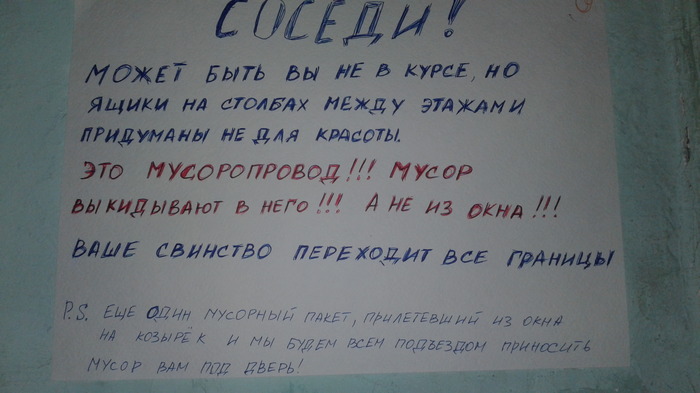 СОСЕДИ!
МОЖЕТ БЫТЬ ВЫ НЕ В КУРСЕ, НО
ЯЩИКИ НА СТОЛБАХ МЕЖДУ ЭТАЖАМИ
ПРИДУМАНЫ НЕ ДЛЯ КРАСОТЫ.
ЭТО МУСОРОПРОВОД!!! МУСОР
ВЫКИДЫВАЮТ В НЕГО!!! А НЕ ИЗ ОКНА!!!
ВАШЕ СВИНСТВО ПЕРЕХОДИТ ВСЕ ГРАНИЦЫ
P.S. ЕЩЕ ОДИН МУСОРНЫЙ ПАКЕТ, ПРИЛЕТЕВШИЙ ИЗ ОКНА
НА КОЗЫРЁК И МЫ БУДЕМ ВСЕМ ПОДЪЕЗДОМ ПРИНОСИТЬ
МУСОР ВАМ ПОД ДВЕРЬ!